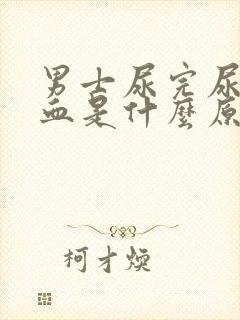 男士尿完尿
血是什麼原
柯才煐